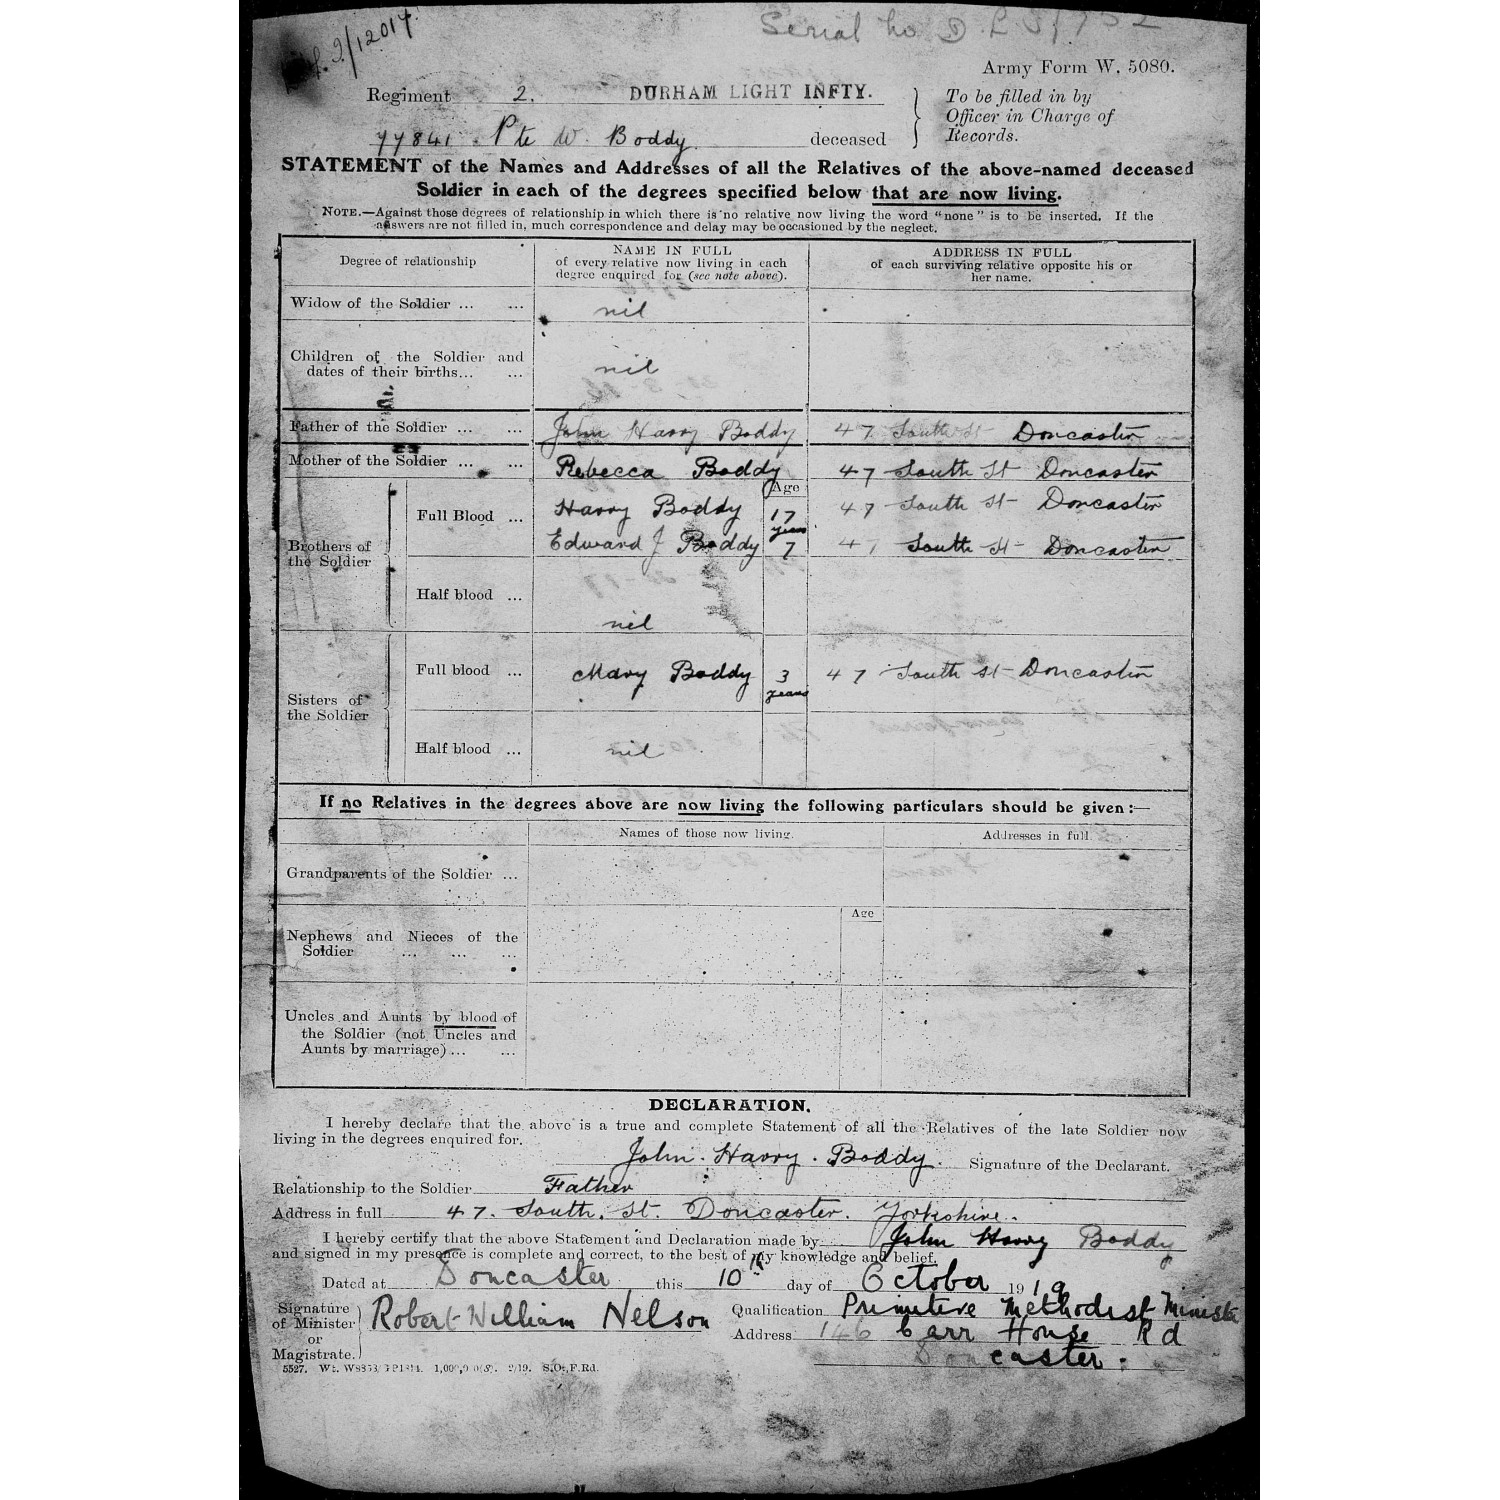 Serial no D.L.
Army Form W. 5080.
Regiment 2. DURHAM LIGHT INFTY.
To be filled in by
Officer in Charge of
Records.
77841 Pte W. Boddy. deceased
STATEMENT of the Names and Addresses of all the Relatives of the above-named deceased
Soldier in each of the degrees specified below that are now living.
NOTE.—Against those degrees of relationship in which there is no relative now living the word "none" is to be inserted. If the
answers are not filled in, much correspondence and delay may be occasioned by the neglect.
Degree of relationship
NAME IN FULL
of every relative now living in each
degree enquired for (see note above).
ADDRESS IN FULL
of each surviving relative opposite his or
her name.
Widow of the Soldier ... ... nil
Children of the Soldier and
dates of their births... ... nil
Father of the Soldier ... ... John Harry Boddy 47 South St Doncaster
Mother of the Soldier ... ... Rebecca Boddy 47 South St Doncaster
Age
Brothers of
the Soldier
Full Blood ... Harry Boddy 17 years 47 South St Doncaster
Edward J Boddy 7 47 South St Doncaster
Half blood ... nil
Sisters of
the Soldier
Full blood ... Mary Boddy 3 years 47 South St Doncaster
Half blood ... nil
If no Relatives in the degrees above are now living the following particulars should be given:—
Names of those now living. Addresses in full.
Grandparents of the Soldier ...
Age
Nephews and Nieces of the
Soldier ... ... ...
Uncles and Aunts by blood of
the Soldier (not Uncles and
Aunts by marriage)... ...
DECLARATION.
I hereby declare that the above is a true and complete Statement of all the Relatives of the late Soldier now
living in the degrees enquired for.
John. Harry. Boddy. Signature of the Declarant.
Relationship to the Soldier Father
Address in full 47. South. St. Doncaster. Yorkshire.
I hereby certify that the above Statement and Declaration made by John Harry Boddy
and signed in my presence is complete and correct, to the best of my knowledge and belief.
Dated at Doncaster this 10th day of October 1919
Signature
of Minister
or
Magistrate.
Robert William Nelson
Qualification Primitive Methodist Minister
Address 146 Carr House Rd
Doncaster.
5527. Wt. 2/19. S.O., F.Rd.